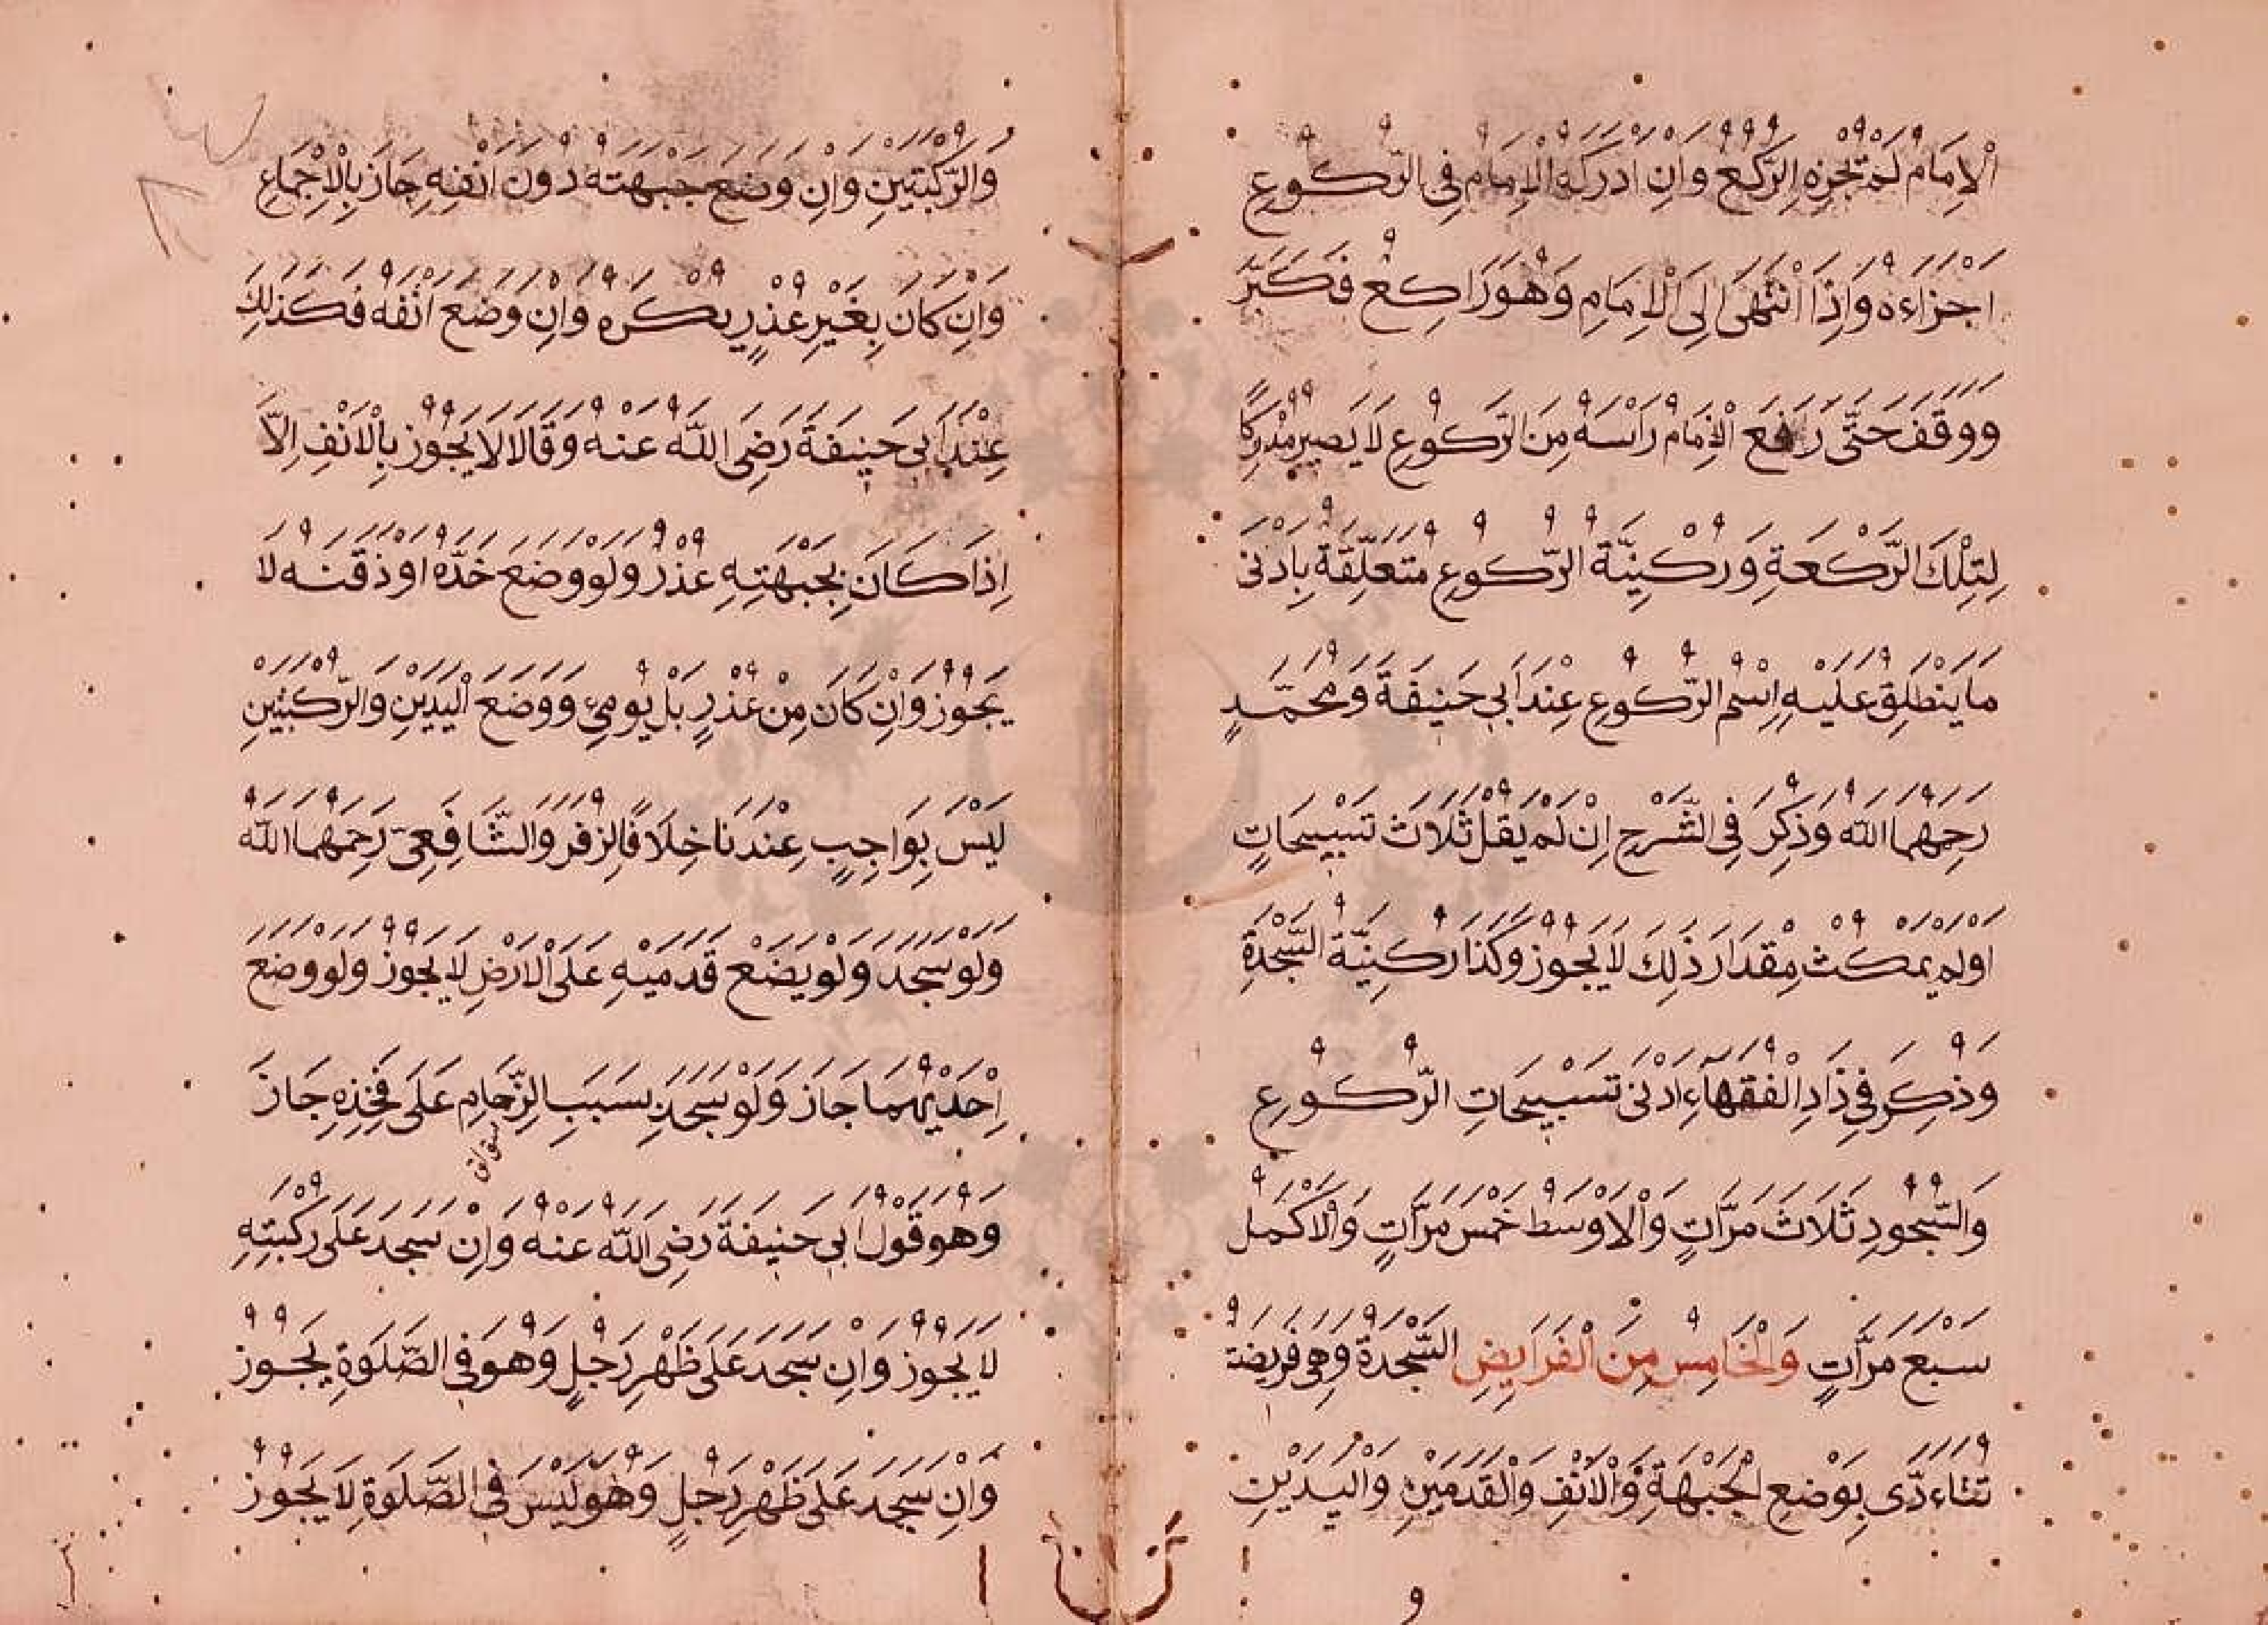 اَلْاِمَامُ لَمْ تُجْزِهِ الرَّكْعُ وَاِنْ اَدْرَكَهُ الْاِمَامُ فِى الرُّكُوعِ
اَجْزَاءَهُ وَاِذَا انْتَهَى اِلَى الْاِمَامِ وَهُوَ رَاكِعٌ فَكَبَّرَ
وَوَقَفَ حَتَّى رَفَعَ الْاِمَامُ رَاْسَهُ مِنَ الرُّكُوعِ لَا يَصِيرُ مُدْرِكًا
لِتِلْكَ الرَّكْعَةِ وَرُكْنِيَّةُ الرُّكُوعِ مُتَعَلِّقَةٌ بِاَدْنَى
مَا يَنْطَلِقُ عَلَيْهِ اِسْمُ الرُّكُوعِ عِنْدَ اَبِى حَنِيفَةَ وَمُحَمَّدٍ
رَحِمَهُمَا اللّٰهُ وَذُكِرَ فِى الشَّرْحِ اِنْ لَمْ يَقُلْ ثَلَاثَ تَسْبِيحَاتٍ
اَوْ لَمْ يَمْكُثْ مِقْدَارَ ذٰلِكَ لَا يَجُوزُ وَكَذَا رُكْنِيَّةُ السَّجْدَةِ
وَذُكِرَ فِى زَادِ الْفُقَهَآءِ اَدْنَى تَسْبِيحَاتِ الرُّكُوعِ
وَالسُّجُودِ ثَلَاثَ مَرَّاتٍ وَالْاَوْسَطُ خَمْسَ مَرَّاتٍ وَالْاَكْمَلُ
سَبْعَ مَرَّاتٍ وَالْخَامِسُ مِنَ الْفَرَايِضِ السَّجْدَةُ وَهِىَ فَرِيضَةٌ
تَتَاءَدَّى بِوَضْعِ الْجَبْهَةِ وَالْاَنْفِ وَالْقَدَمَيْنِ وَالْيَدَيْنِ
و
وَالرُّكْبَتَيْنِ وَاِنْ وَضَعَ جَبْهَتَهُ دُونَ اَنْفِهِ جَازَ بِالْاِجْمَاعِ
وَاِنْ كَانَ بِغَيْرِ عُذْرٍ يُكْرَهُ وَاِنْ وَضَعَ اَنْفَهُ فَكَذٰلِكَ
عِنْدَ اَبِى حَنِيفَةَ رَضِىَ اللّٰهُ عَنْهُ وَقَالَا لَا يَجُوزُ بِالْاَنْفِ اِلَّا
اِذَا كَانَ بِجَبْهَتِهِ عُذْرٌ وَلَوْ وَضَعَ خَدَّهُ اَوْ ذَقَنَهُ لَا
يَجُوزُ وَاِنْ كَانَ مِنْ عُذْرٍ بَلْ يُومِئُ وَوَضْعُ الْيَدَيْنِ وَالرُّكْبَتَيْنِ
لَيْسَ بِوَاجِبٍ عِنْدَنَا خِلَافًا لِزُفَرَ وَالشَّافِعِىِّ رَحِمَهُمَا اللّٰهُ
وَلَوْ سَجَدَ وَلَوْ يَضَعْ قَدَمَيْهِ عَلَى الْاَرْضِ لَا يَجُوزُ وَلَوْ وَضَعَ
اِحْدَيْهُمَا جَازَ وَلَوْ سَجَدَ بِسَبَبِ الزِّحَامِ عَلَى فَخِذِهِ جَازَ
وَهُوَ قَوْلُ اَبِى حَنِيفَةَ رَضِىَ اللّٰهُ عَنْهُ وَاِنْ سَجَدَ عَلَى رُكْبَتِهِ
لَا يَجُوزُ وَاِنْ سَجَدَ عَلَى ظَهْرِ رَجُلٍ وَهُوَ فِى الصَّلٰوةِ يَجُوزُ
وَاِنْ سَجَدَ عَلَى ظَهْرِ رَجُلٍ وَهُوَ لَيْسَ فِى الصَّلٰوةِ لَا يَجُوزُ